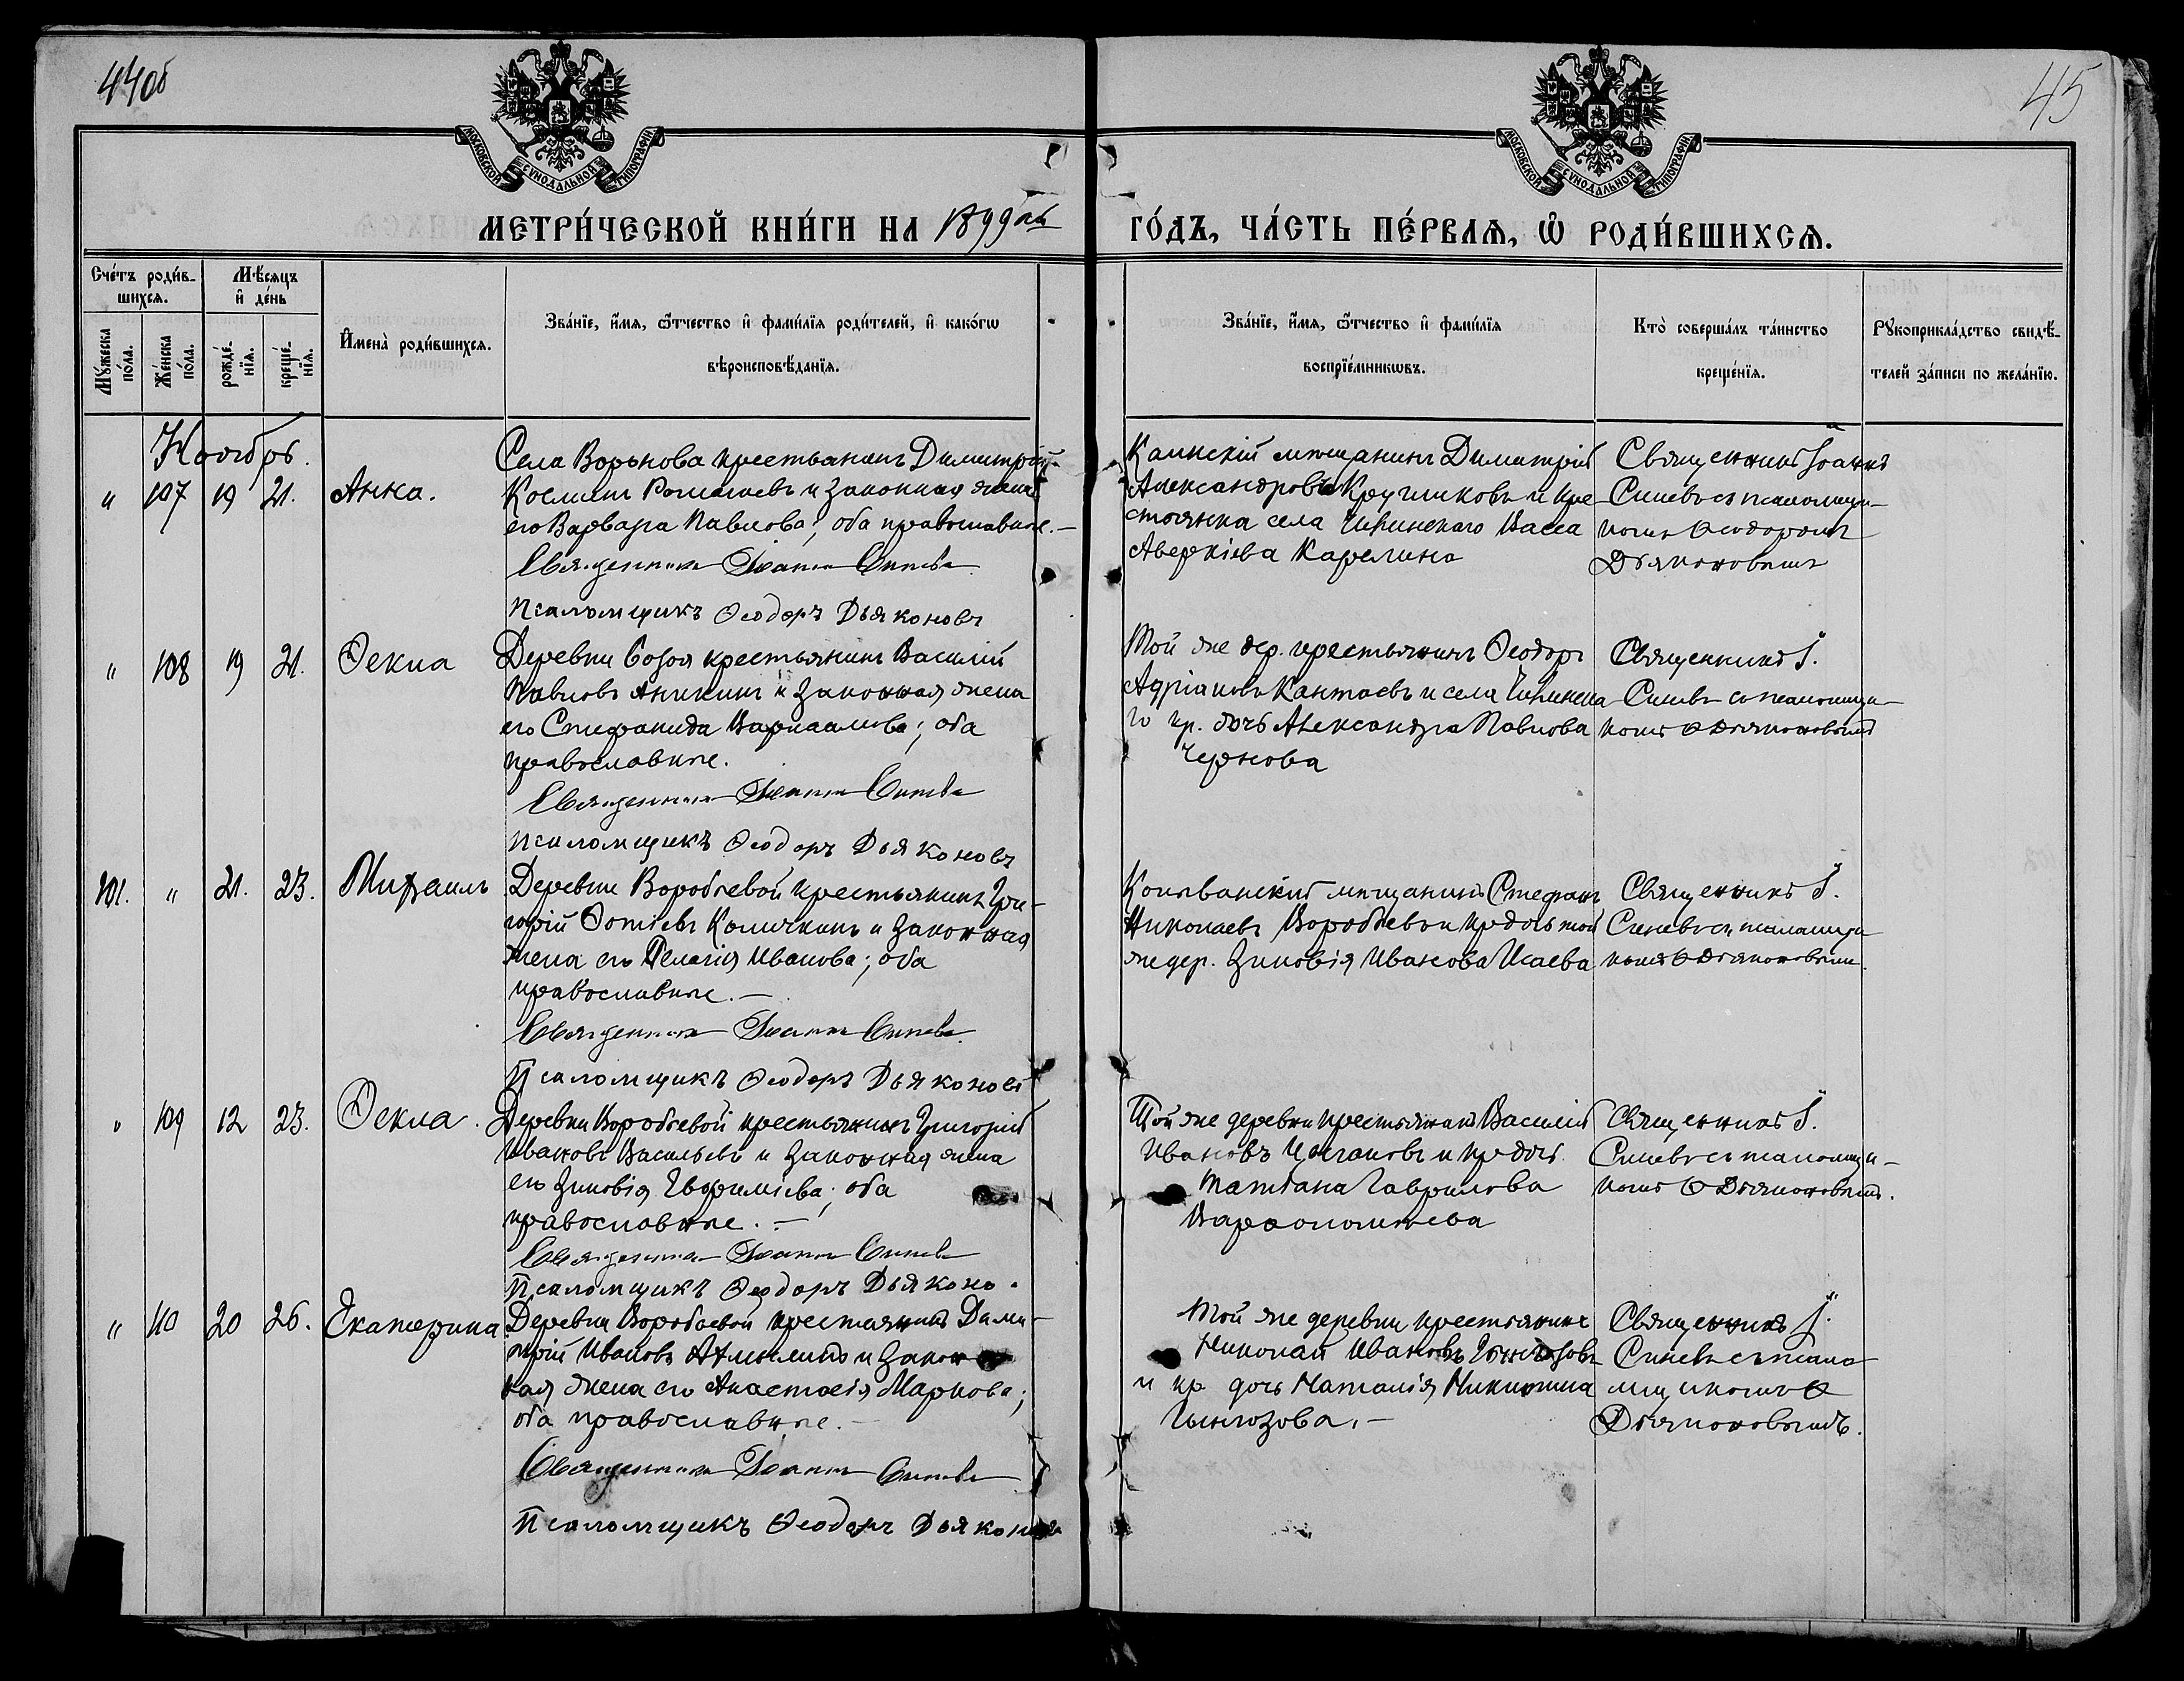 44об
45
МОСКОВСКОЙ СУНОДАЛЬНОЙ ТИПОГРАФІИ
МОСКОВСКОЙ СУНОДАЛЬНОЙ ТИПОГРАФІИ
МЕТРИ́ЧЕСКОЙ КНИ́ГИ НА 1899ый
ГО́ДЪ, ЧА́СТЬ ПЕ́РВАѦ, Ѽ РОДИ́ВШИХСѦ.
Сче́тъ роди́в-
шихсѧ.
Мѣ́сѧцъ
и҆ де́нь
Мꙋ́жеска
по́ла.
Же́нска
по́ла.
рожде́-
нїѧ.
креще́-
нїѧ.
И҆мена̀ роди́вшихсѧ.
Зва́нїе, и҆́мѧ, ѻ҆́тчество и҆ фами́лїѧ роди́телей, и҆ како́гѡ
вѣроисповѣ́данїѧ.
Зва́нїе, и҆́мѧ, ѻ҆́тчество и҆ фами́лїѧ
воспрїе́мникѡвъ.
Кто̀ соверша́лъ та́инство
креще́нїѧ.
Рꙋкоприкла́дство свидѣ́-
телей за́писи по жела́нїю.
Ноябрь.
" 107 19 21. Анна.
Села Ворьнова крестьянинъ Димитрій
Косминъ и законная жена
его Варвара Павлова; оба православные.—
Священникъ Іоаннъ Синевъ
Псаломщикъ Ѳеодоръ Дьяконовъ
Каинскій мѣщанинъ Димитрій
Александровъ Кругликовъ и кре-
стьянка села Чикинскаго Васса
Аверкіева Карелина
Священникъ Іоаннъ
Синевъ съ псаломщи-
комъ Ѳеодоромъ
Дьяконовымъ
" 108 19 21. Ѳекла
Деревни крестьянинъ Василій
Павловъ Аникинъ и законная жена
его Стефанида Варлаамова; оба
православные.
Священникъ Іоаннъ Синевъ
Псаломщикъ Ѳеодоръ Дьяконовъ
Той же дер. крестьянинъ Ѳеодоръ
Адріановъ Кантаевъ и села
го кр. дочь Александра Павлова
Чернова
Священникъ І.
Синевъ съ псаломщи-
комъ Ѳ Дьяконовымъ
101. " 21. 23. Михаилъ
Деревни Воробьевой крестьянинъ Гри-
горій Фотіевъ Каличкинъ и законная
жена его Пелагія Иванова; оба
православные.—
Священникъ Іоаннъ Синевъ.
Псаломщикъ Ѳеодоръ Дьяконовъ
Колыванскій мѣщанинъ Стефанъ
Николаевъ Воробьевъ и кр дочь той
же дер. Зиновія Иванова Исаева
Священникъ І.
Синевъ съ псаломщи
комъ Ѳ Дьяконовымъ.
" 109 12 23. Ѳекла.
Деревни Воробьевой крестьянинъ Григорій
Ивановъ Васильевъ и законная жена
его Зиновія Евфиміева; оба
православные.—
Священникъ Іоаннъ Синевъ
Псаломщикъ Ѳеодоръ Дьяконо.
Той же деревни крестьянинъ Василій
Ивановъ и кр дочь
Татіана Гаврилова
Варѳоломеева
Священникъ І.
Синевъ съ псаломщи-
комъ Ѳ Дьяконовымъ.
" 110 20 26. Екатерина
Деревни Воробьевой крестьянинъ Дими-
трій Ивановъ и закон
ная жена его Анастасія Маркова;
оба православные.—
Священникъ Іоаннъ Синевъ
Псаломщикъ Ѳеодоръ Дьяконовъ
Той же деревни крестьянинъ
Николай Ивановъ
и кр дочь Наталія Никитина
Священникъ І.
Синевъ съ псало
мщикомъ Ѳ
Дьяконовымъ.